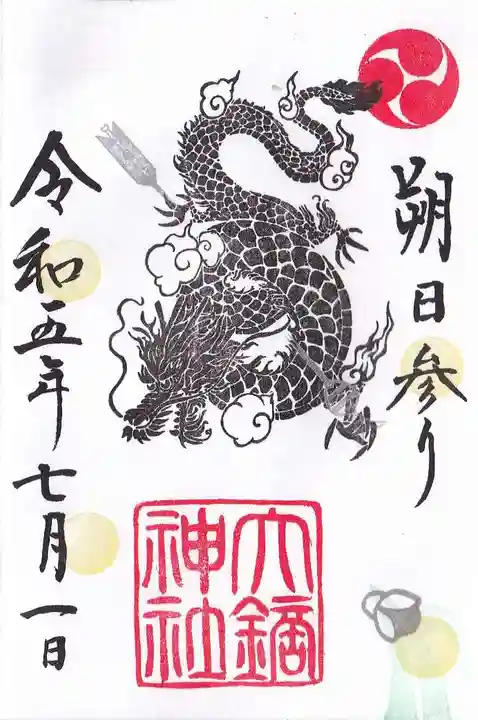 朔日参り
六鏑神社
令和五年七月一日